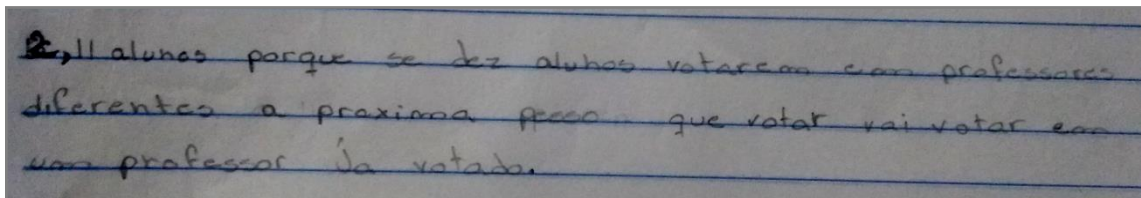 2, 11 alunos porque se dez aluhos votarem em professores
diferentes a proxima que votar vai votar em
um professor Ja votado.